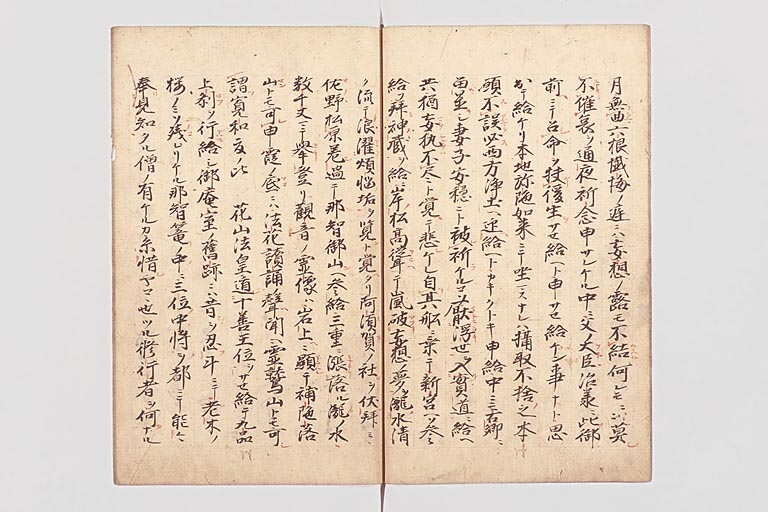 月無曲六根懺悔ノ遅ニハ妄想ノ露モ不結何レモニハ莫
不催哀ヲ通夜祈念申サレケル中ニモ父大臣治承ニ此御
前ニテ召命ヲ扶後生サセ給ヘト申サセ給ケン事ナト思
出テ給ケリ本地弥陀如来ニテ坐ス摂取不捨之本
願不誤必西方浄土ヘ迎給ヘトカキクトキ申給中ニモ古郷ニ
留置シ妻子安穏ニト被祈ケルコソ厭浮世ヲ入実道ニ給ヘ
共猶妄執不尽ト覚テ悲ケレ自其船ニ乗テ新宮ヘ参
給ヲ拝神蔵ヲ給ニ岸松高聳テ嵐破妄想夢ヲ瀧水清
ク流テ浪濯煩悩垢ヲ覧ト覚タリ阿須賀ノ社ヲ伏拝ミ
佐野松原巻過テ那智御山ヘ参給三重ニ漲落ル瀧ノ水
数千丈ニ挙登リ観音ノ霊像ハ岩上ニ顕テ補陀落
山トモ可申霞ノ底ニハ法花読誦ノ聲聞ヘ霊鷲山トモ可
謂寛和夏ノ比　花山法皇遁十善王位ヲサセ給テ九品
上刹ノ行給シ御庵室ノ舊跡ニハ昔ヲ忍斗ニテ老木ノ
桜ノミソ残レリケル那智篭ノ中ニ三位中将ヲ都ニテ能々
奉見知タル僧ノ有ケルカ糸惜ヤコヽ也ツル修行者ヲ何ナル